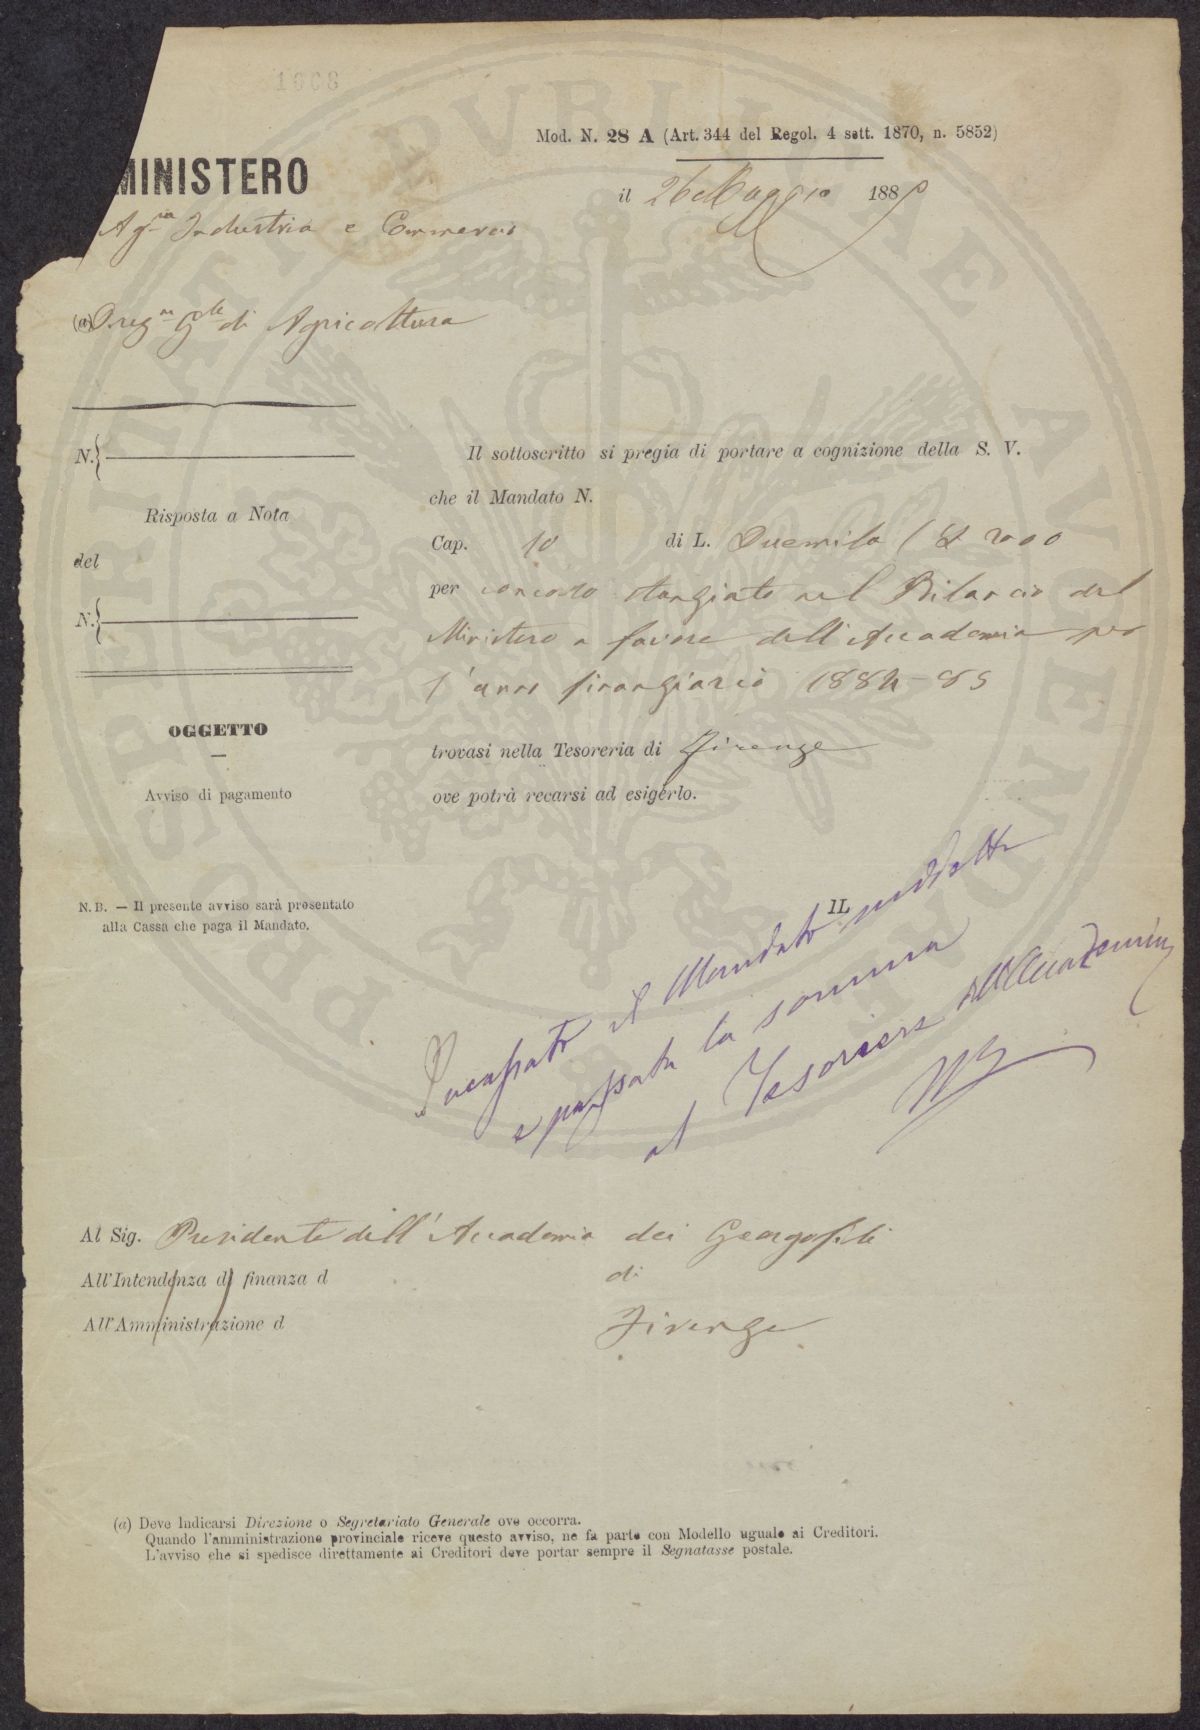 1008
Mod. N. 28 A (Art. 344 del Regol. 4 sett. 1870, n. 5852)
MINISTERO
il 26 Maggio 188
Agra Industria e Commercio
(a) Gle di Agricoltura
N.
Il sottoscritto si pregia di portare a cognizione della S. V.
che il Mandato N.
Risposta a Nota
Cap. 10 di L. Duemila (£ 2000
del
per concorso stanziato nel Bilancio del
N.
Ministero a favore dell'Accademia per
l'anno finanziario 1884-85
OGGETTO
trovasi nella Tesoreria di Firenze
Avviso di pagamento
ove potrà recarsi ad esigerlo.
N. B. — Il presente avviso sarà presentato
alla Cassa che paga il Mandato.
IL
Incassato il Mandato suddetto
e passata la somma
al Tesoriere dell'Accademia
Al Sig. Presidente dell'Accademia dei Georgofili
All'Intendenza di finanza d
di
All'Amministrazione d
Firenze
(a) Deve Indicarsi Direzione o Segretariato Generale ove occorra.
Quando l'amministrazione provinciale riceve questo avviso, ne fa parte con Modello uguale ai Creditori.
L'avviso che si spedisce direttamente ai Creditori deve portar sempre il Segnatasse postale.